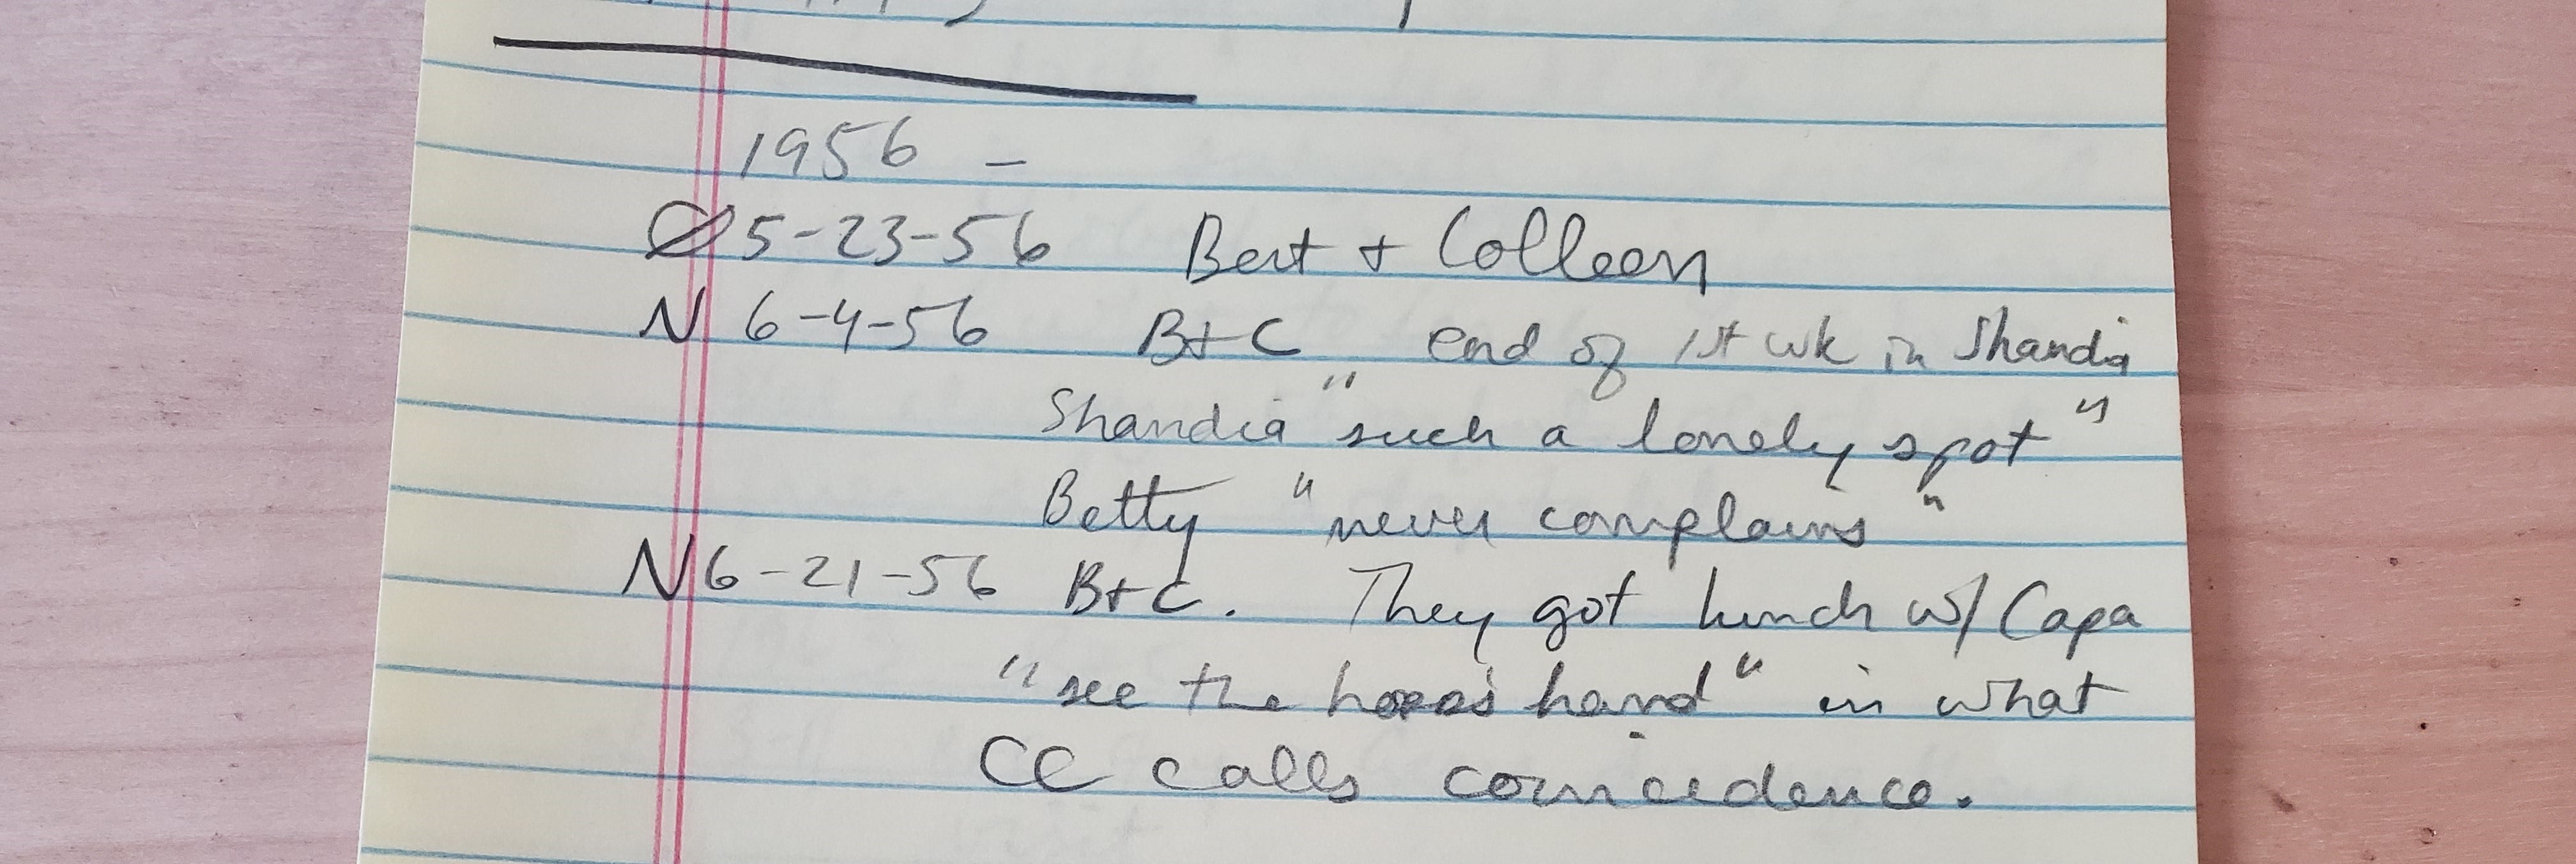 1956 –
Ø 5-23-56 Bert + Colleen
N 6-4-56 B+C end of 1st wk in Shandia
Shandia "such a lonely spot"
Betty "never complains"
N 6-21-56 B+C. They got lunch w/ Capa
"see the hand" in what
CC calls coincedence.